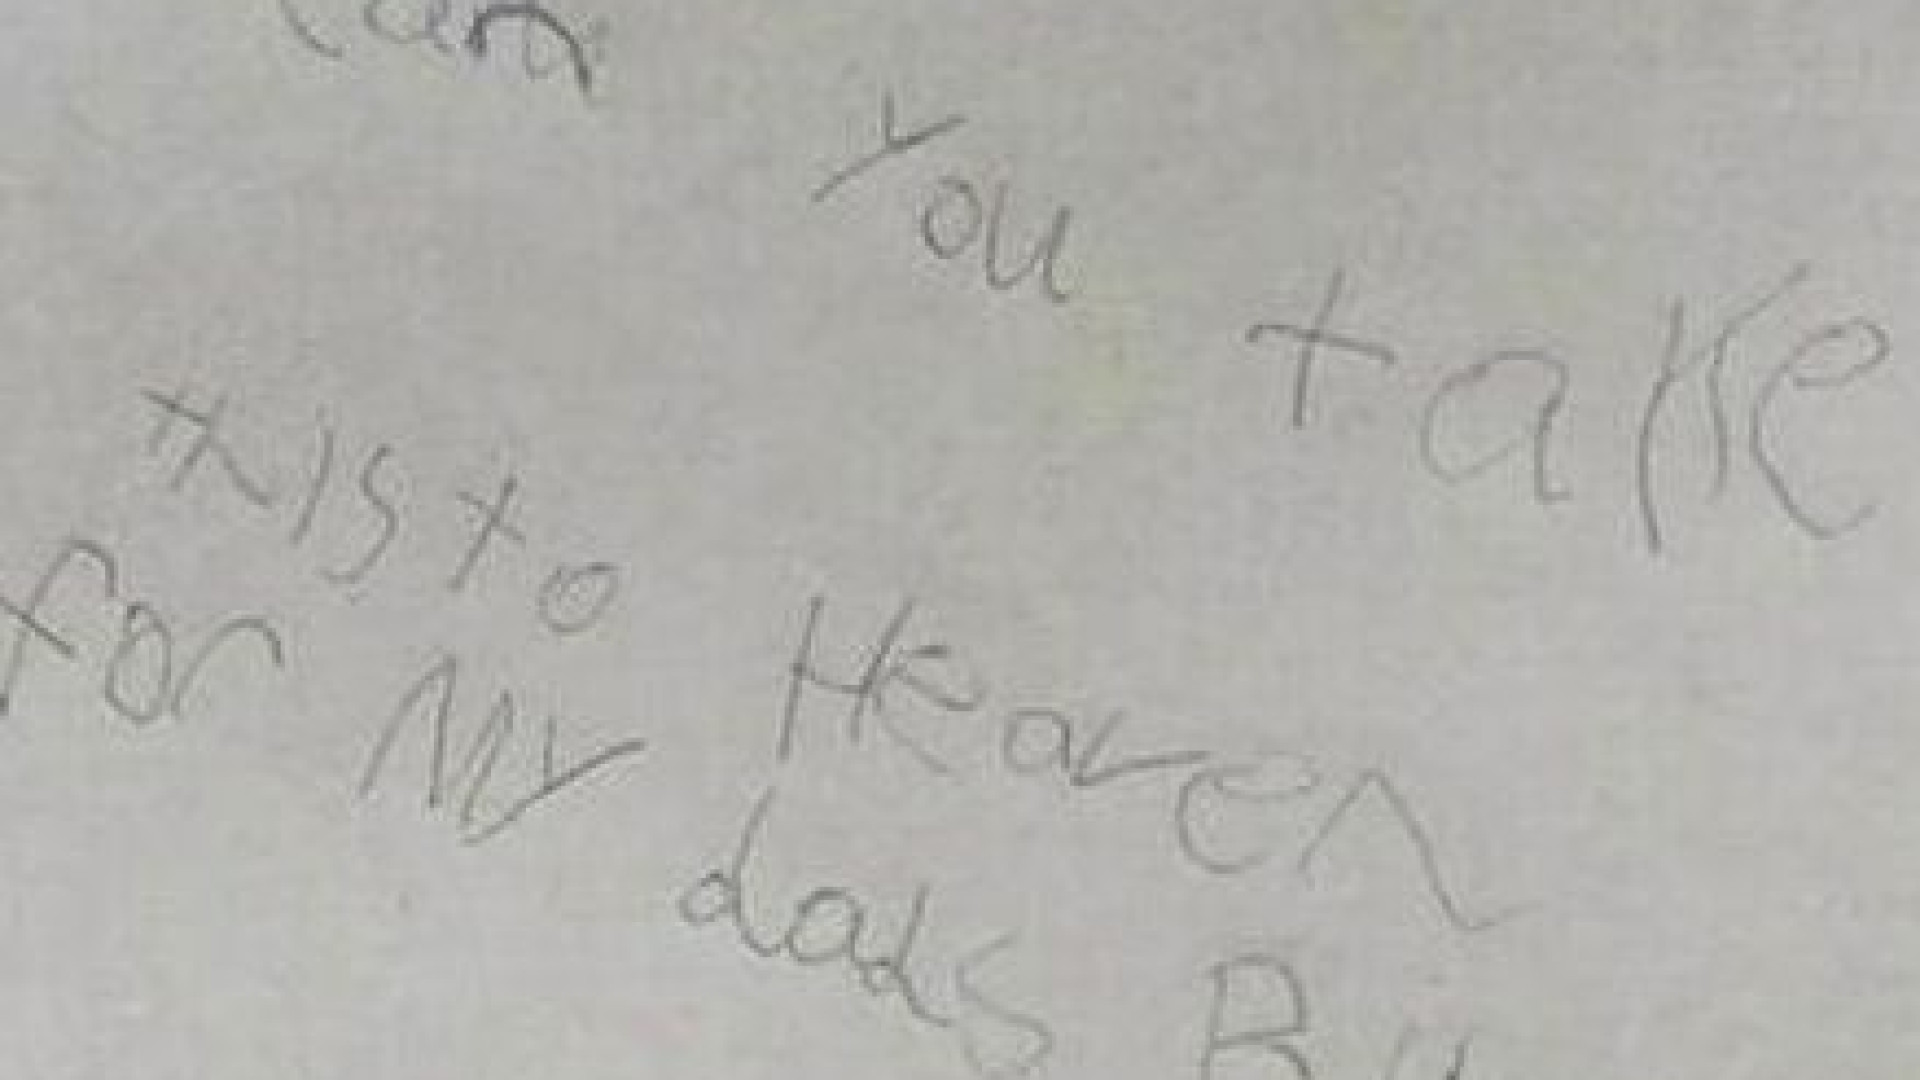 can you take
this to Heaven
for my dads